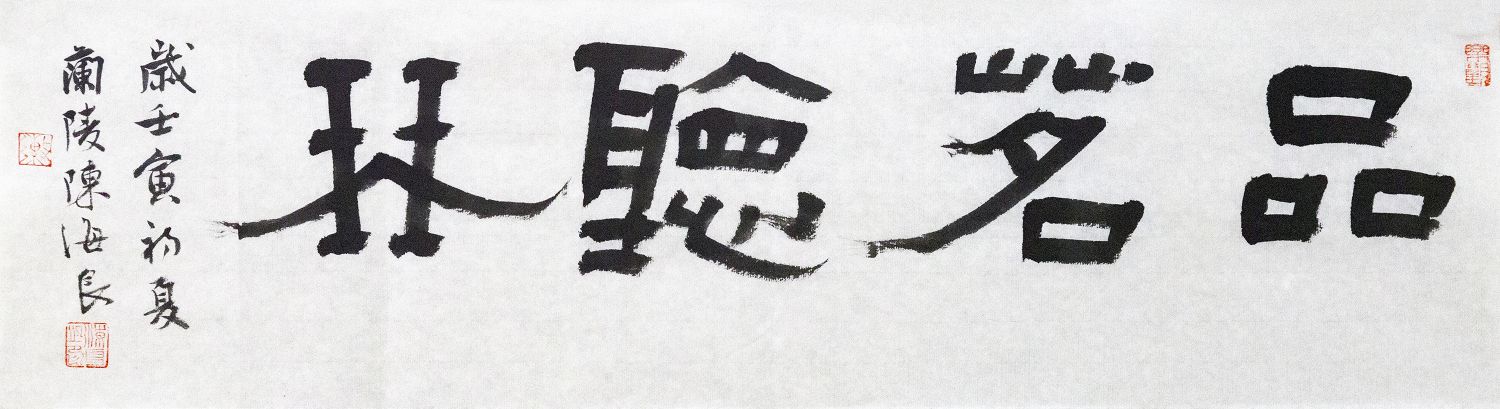 品茗聽琴
歲壬寅初夏
蘭陵陳海長